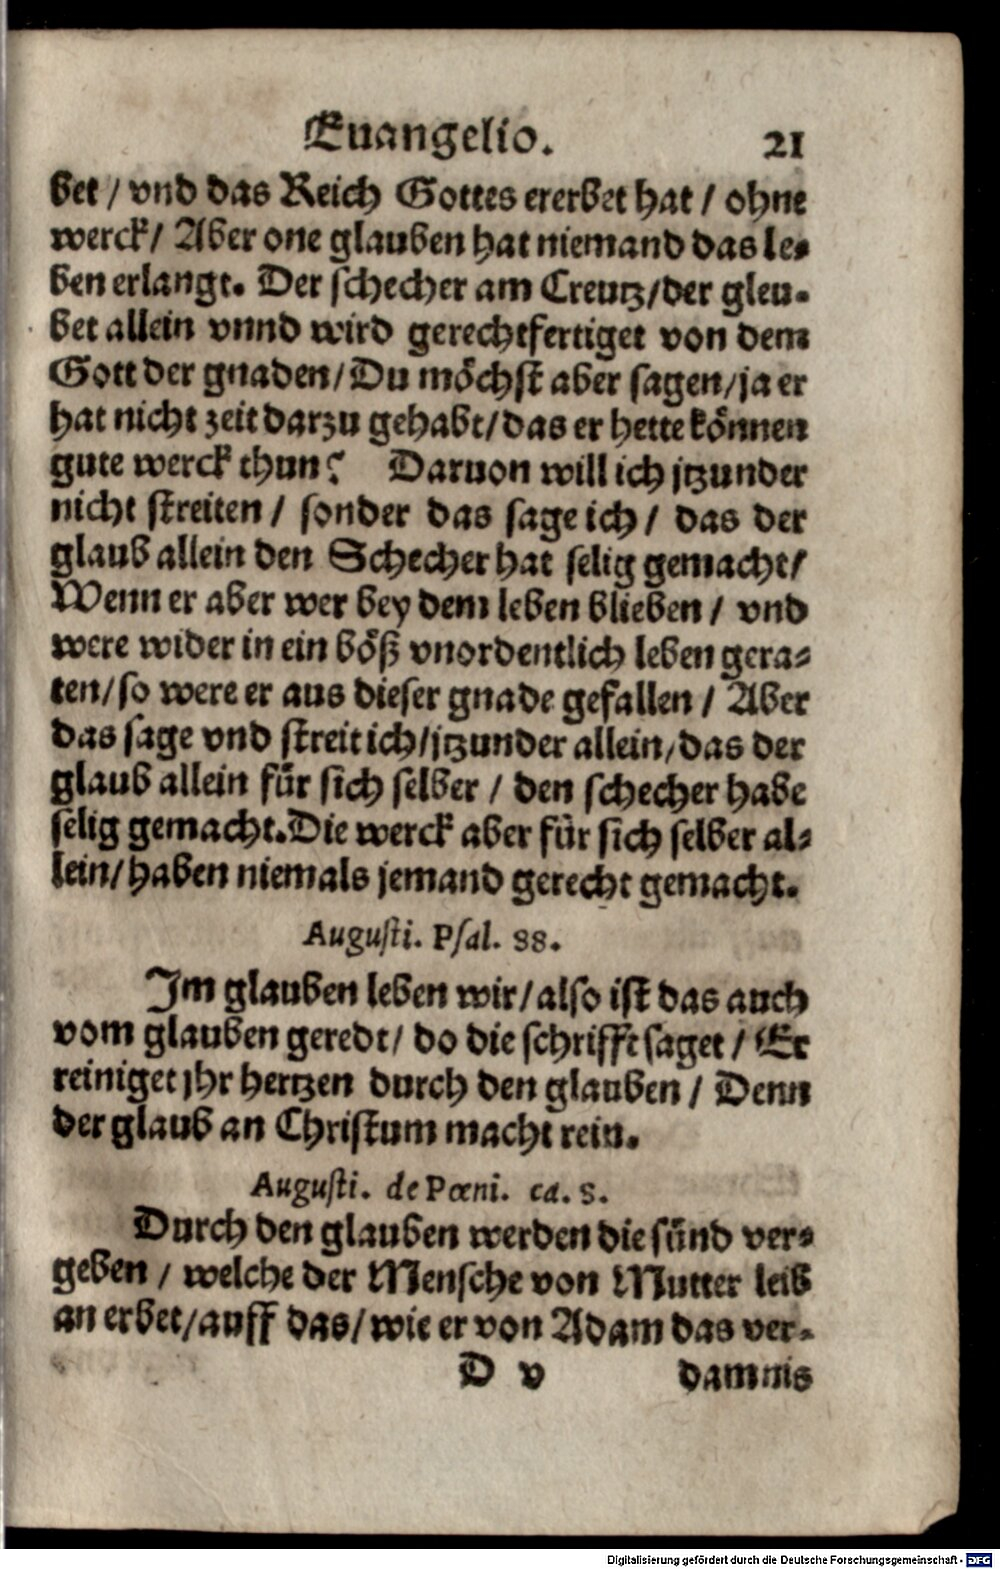 Euangelio. 21
bet / vnd das Reich Gottes ererbet hat / ohne
werck / Aber one glauben hat niemand das le-
ben erlangt. Der schecher am Creutz / der gleu-
bet allein vnnd wird gerechtfertiget von dem
Gott der gnaden / Du möchst aber sagen / ja er
hat nicht zeit darzu gehabt / das er hette können
gute werck thun? Daruon will ich jtzunder
nicht streiten / sonder das sage ich / das der
glaub allein den Schecher hat selig gemacht /
Wenn er aber wer bey dem leben blieben / vnd
were wider in ein böß vnordentlich leben gera-
ten / so were er aus dieser gnade gefallen / Aber
das sage vnd streit ich / jtzunder allein / das der
glaub allein für sich selber / den schecher habe
selig gemacht. Die werck aber für sich selber al-
lein / haben niemals jemand gerecht gemacht.
Augusti. Psal. 88.
Im glauben leben wir / also ist das auch
vom glauben geredt / do die schrifft saget / Er
reiniget jhr hertzen durch den glauben / Denn
der glaub an Christum macht rein.
Augusti. de Pœni. ca. 8.
Durch den glauben werden die sünd ver-
geben / welche der Mensche von Mutter leib
an erbet / auff das / wie er von Adam das ver-
D v damnis
Digitalisierung gefördert durch die Deutsche Forschungsgemeinschaft - DFG